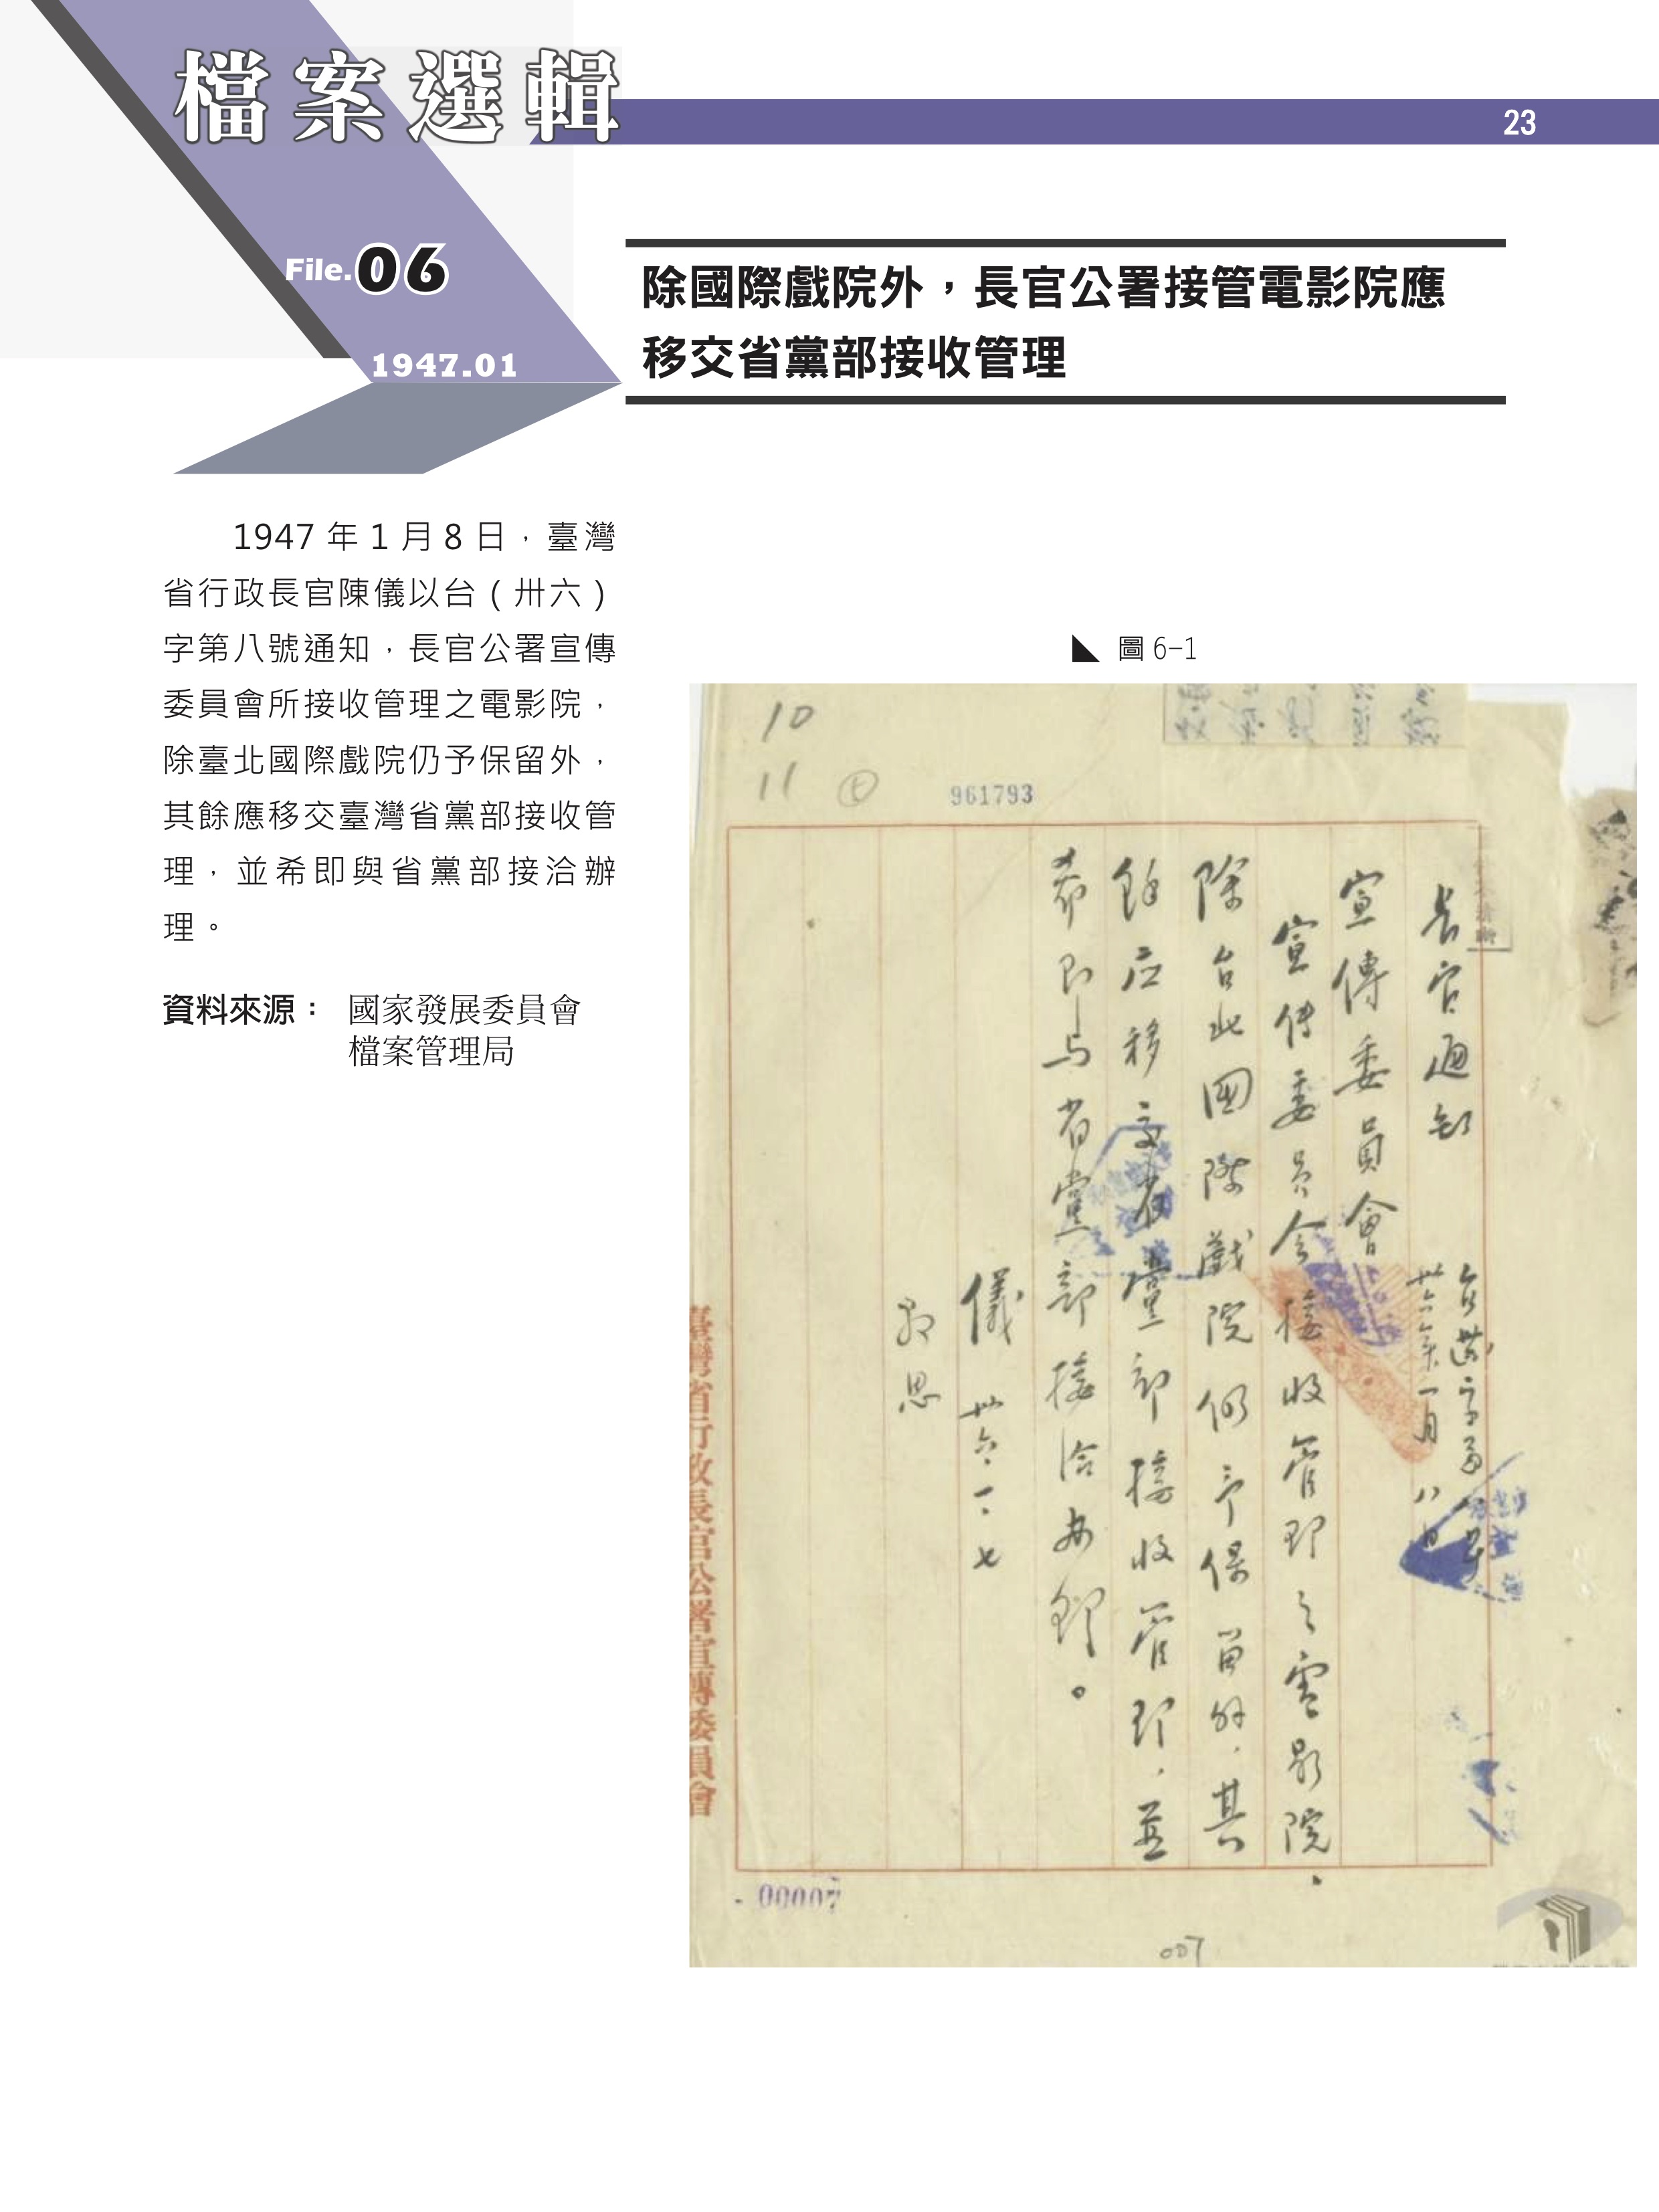 檔案選輯
23
File.06
1947.01
除國際戲院外，長官公署接管電影院應
移交省黨部接收管理
1947 年 1 月 8 日，臺灣
省行政長官陳儀以台（卅六）
字第八號通知，長官公署宣傳
委員會所接收管理之電影院，
除臺北國際戲院仍予保留外，
其餘應移交臺灣省黨部接收管
理，並希即與省黨部接洽辦
理。
資料來源： 國家發展委員會
檔案管理局
圖 6-1
10
11
961793
長官通知
卅六年一月八日
宣傳委員會
宣传委員会接收管理之電影院、
除台北國際戲院仍予保留外、其
餘应移交省黨部接收管理、並
希即与省黨部接洽办理。
儀 卅六、一、七
臺灣省行政長官公署宣傳委員會
00007
007